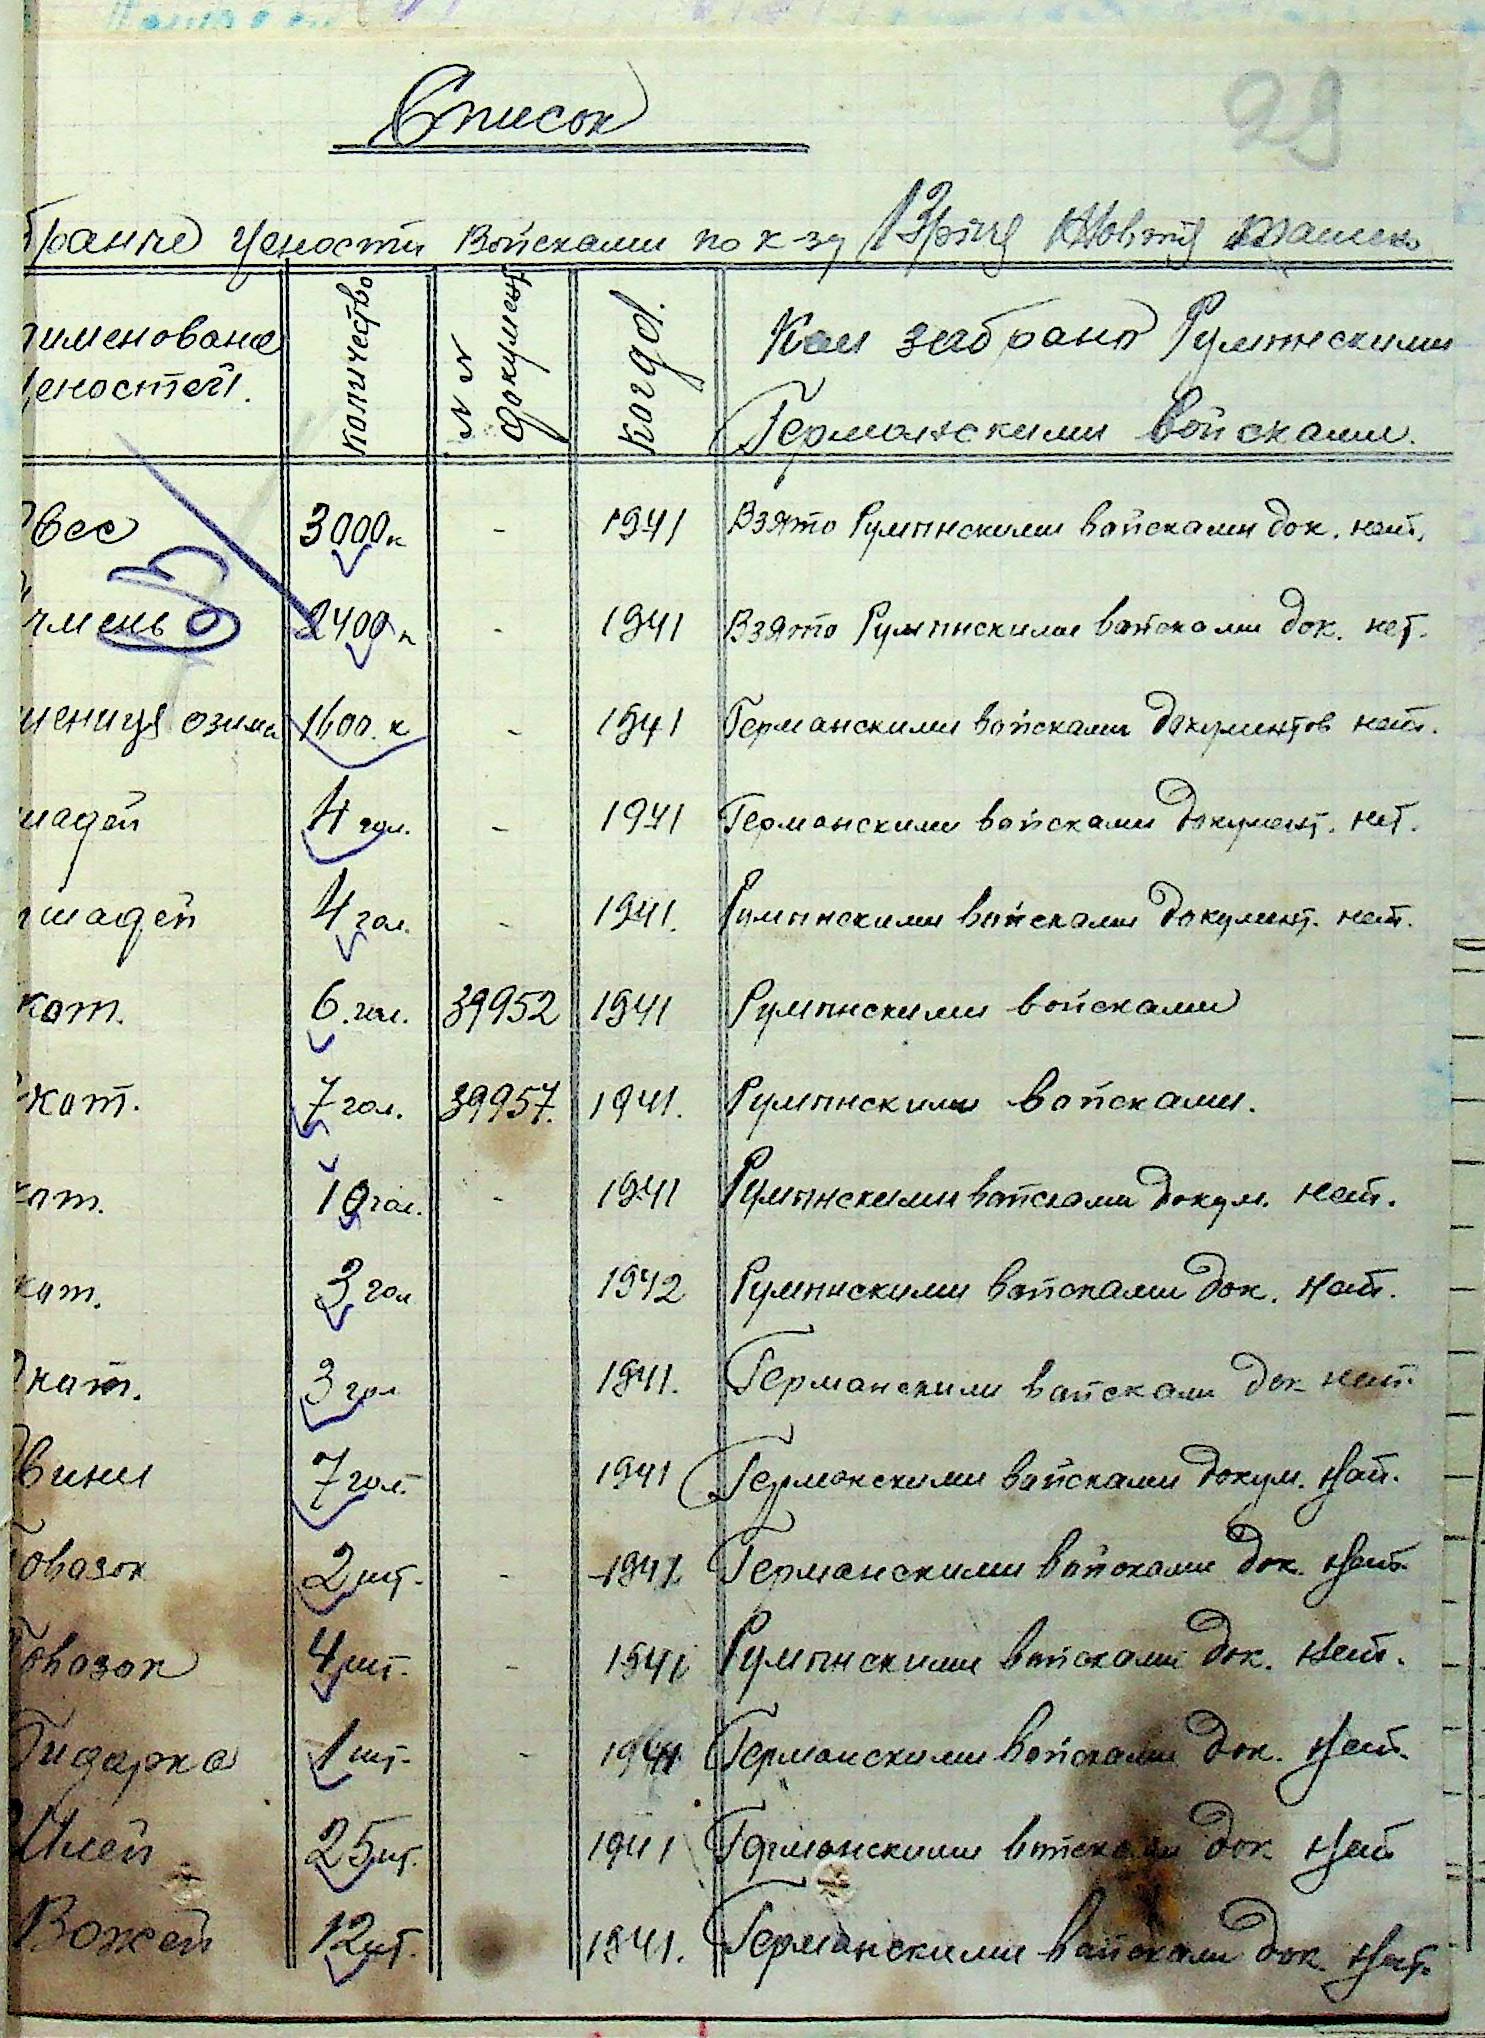 29
Список
бранпе Ценостти Войсками по к-зу
аименование Ценостей. количество N N документ когдо. Кем забрано Румынскими Германскими Войсками.
Овес 3000 к - 1941 Взято Румынскими вайсками док. нет.
Ячмень 2400 к - 1941 Взято Румынскими вайсками док. нет.
шениця озима 1600. к - 1941 Германскими войсками документов нет.
шадей 4 гол. - 1941 Германскими войсками документ. нет.
ошадей 4 гол. - 1941. Румынскими войсками документ. нет.
кот. 6. гол. 39952 1941 Румынскими войсками
скот. 7 гол. 39957. 1941. Румынскими вайсками.
кот. 10 гол. - 1941 Румынскими вайсками докум. нет.
кот. 3 гол 1942 Румынскими вайсками док. нет.
Скот. 3 гол 1941. Германскими вайскам док нет.
Свини 7 гол. 1941 Германскими вайсками докум. нет.
Повозок 2 шт. - 1941 Германскими вайсками док. нет.
Повозок 4 шт. - 1941 Румынскими вайсками док. нет.
Гидарка 1 шт. - 1941 Германскими войсками док. нет.
Шлей 25 шт. 1941 Германскими вайсками док нет
Вожей 12 шт. 1941. Германскими вайскали док. нет.